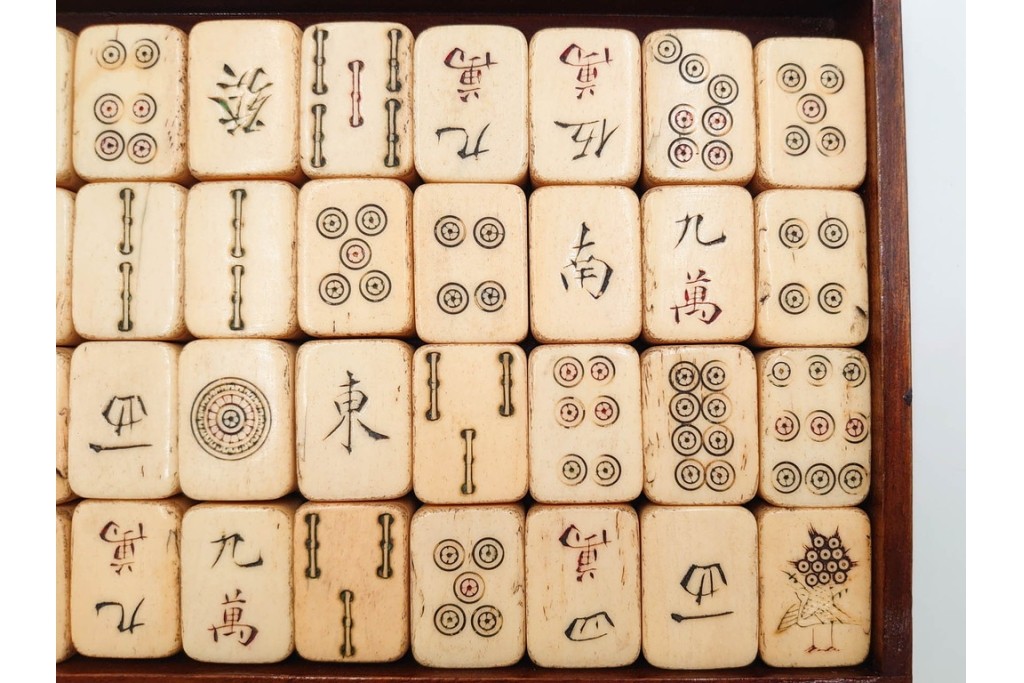 發
九萬
伍萬
南
九萬
西
東
九萬
九萬
四萬
西